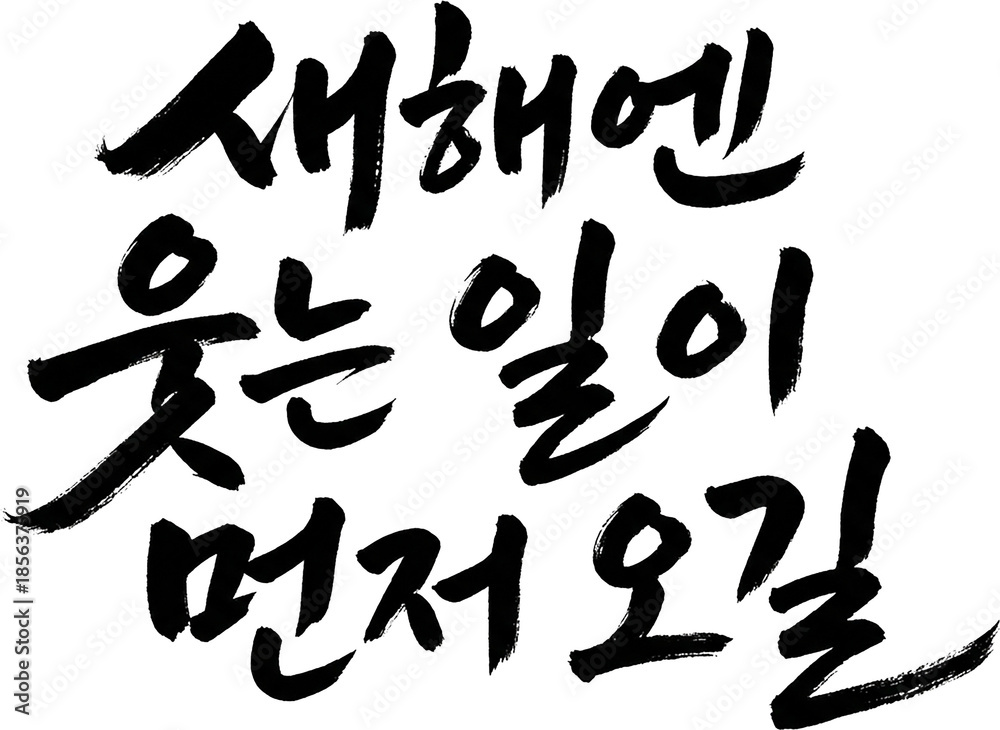 새해엔
웃는 일이
먼저 오길
Adobe Stock | #1856375919